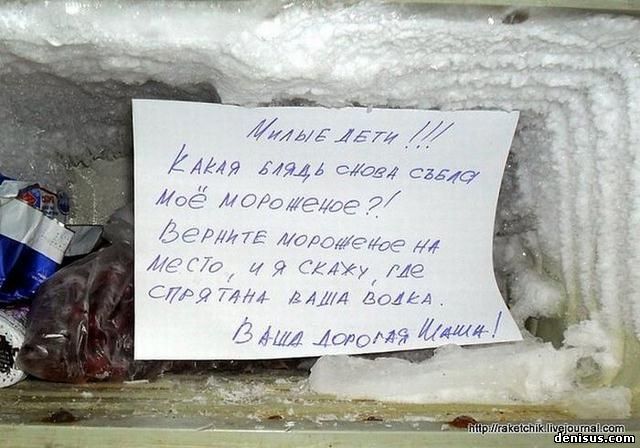 Милые дети!!!
Какая блядь снова съела
моё мороженое?!
Верните мороженое на
место, и я скажу, где
спрятана ваша водка.
Ваша дорогая Маша!
http://raketchik.livejournal.com
denisus.com